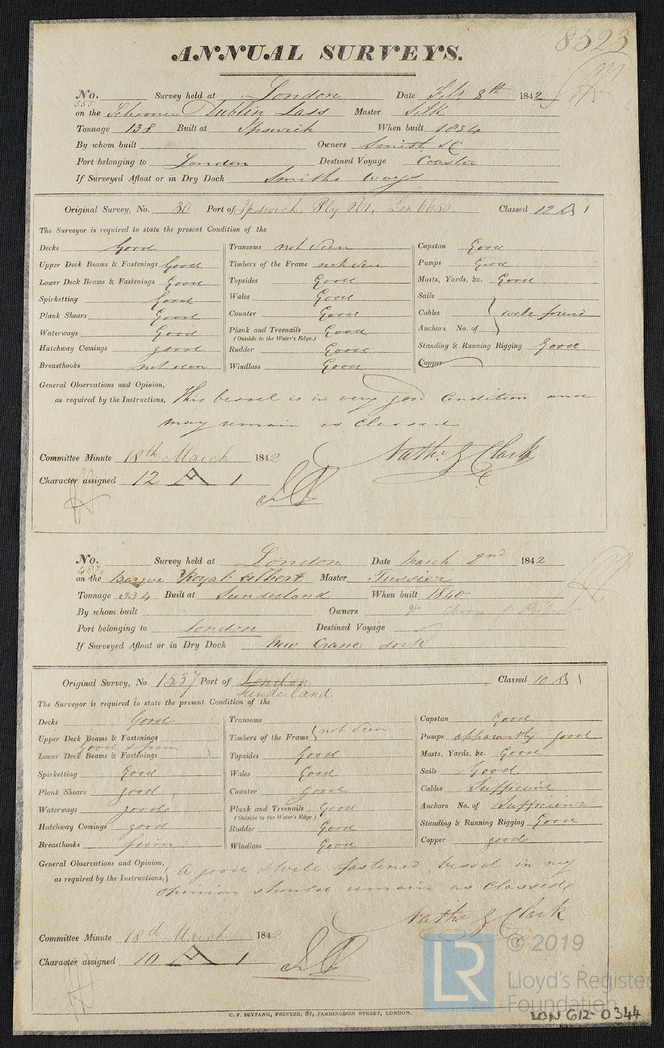 8523
ANNUAL SURVEYS.
No. Survey held at London Date Feb. 8th 1842
on the Schooner Dublin Lass Master Silk
Tonnage 138 Built at Ipswich When built 1834
By whom built Owners Smith &C
Port belonging to London Destined Voyage Coaster
If Surveyed Afloat or in Dry Dock Smiths ways
Original Survey, No. 30 Port of Ipswich, Classed 12 A 1
The Surveyor is required to state the present Condition of the
Decks Good Transoms not seen Capstan Good
Upper Deck Beams & Fastenings Good Timbers of the Frame not seen Pumps Good
Lower Deck Beams & Fastenings Good Topsides Good Masts, Yards, &c. Good
Spirketting Good Wales Good Sails
Plank Shears Good Counter Good Cables well found
Waterways Good Plank and Treenails Good Anchors No. of
(Outside to the Water's Edge.)
Hatchway Comings good Rudder Good Standing & Running Rigging Good
Breasthooks not seen Windlass Good Copper
General Observations and Opinion,
as required by the Instructions, This vessel is in very good condition and
may remain as Classed
Committee Minute 18th March 1842 Nathl. G Clark
Character assigned 12 A 1
No. Survey held at London Date March 2nd 1842
on the Barque Royal Albert Master
Tonnage 234 Built at Sunderland When built 1840
By whom built Owners
Port belonging to London Destined Voyage
If Surveyed Afloat or in Dry Dock New Crane dock
Original Survey, No. 1537 Port of London Classed 10 A 1
Sunderland
The Surveyor is required to state the present Condition of the
Decks Good Transoms Capstan Good
Upper Deck Beams & Fastenings Timbers of the Frame not seen Pumps apparently good
Good & firm
Lower Deck Beams & Fastenings Topsides Good Masts, Yards, &c. Good
Spirketting Good Wales Good Sails Good
Plank Shears good Counter good Cables Sufficient
Waterways good Plank and Treenails Good Anchors No. of Sufficient
(Outside to the Water's Edge.)
Hatchway Comings good Rudder Good Standing & Running Rigging Good
Breasthooks firm Windlass Good Copper good
General Observations and Opinion,
as required by the Instructions, A good well fastened vessel in my
opinion should remain as Classed
Nathl. G Clark
Committee Minute 18th March 1842
Character assigned 10 A 1
LR © 2019
Lloyd's Register
Foundation
C. F. SEYFANG, PRINTER, 57, FARRINGDON STREET, LONDON.
LON 612-0344